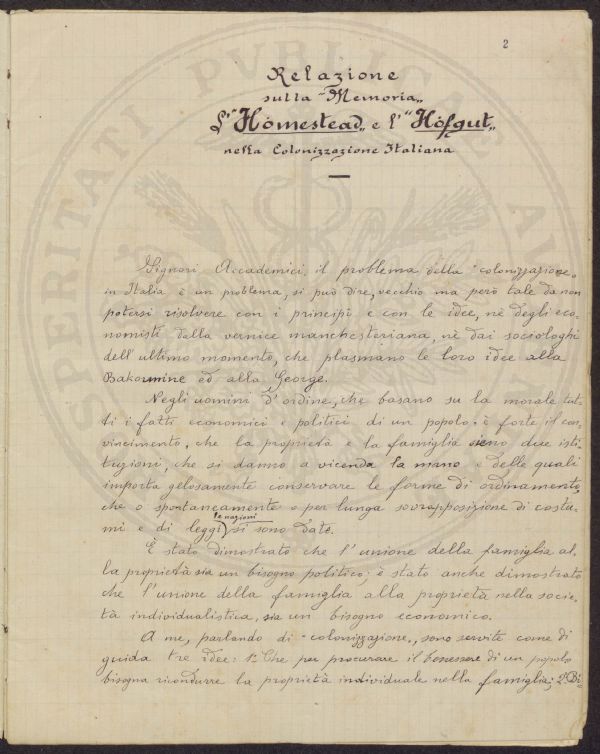 2
Relazione
sulla "Memoria„
L'"Homestead„ e l'"Hofgut„
nella Colonizzazione Italiana
Signori Accademici, il problema della "colonizzazione„
in Italia è un problema, si può dire, vecchio ma però tale da non
potersi risolvere con i principî e con le idee, nè degli eco-
nomisti dalla vernice manchesteriana, nè dai sociologhi
dell'ultimo momento, che plasmano le loro idee alla
Bakounine ed alla George.
Negli uomini d'ordine, che basano su la morale tut-
ti i fatti economici e politici di un popolo, è forte il con-
vincimento, che la proprietà e la famiglia sieno due isti-
tuzioni, che si danno a vicenda la mano e delle quali
importa gelosamente conservare le forme di ordinamento,
che o spontaneamente o per lunga sovrapposizione di costu-
mi e di leggi le nazioni si sono date.
È stato dimostrato che l'unione della famiglia al-
la proprietà sia un bisogno politico; è stato anche dimostrato
che l'unione della famiglia alla proprietà nella socie-
tà individualistica, sia un bisogno economico.
A me, parlando di "colonizzazione„, sono servite come di
guida tre idee: 1.° Che per procurare il benessere di un popolo
bisogna ricondurre la proprietà individuale nella famiglia; 2.° Bi-
SPERITATI PVBLICAE